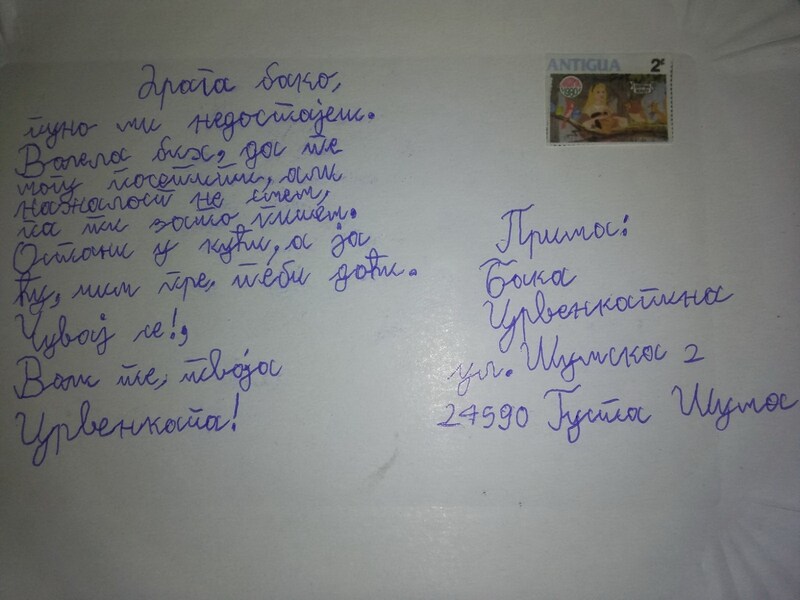 Драга бако,
пуно ми недостајеш.
Волела бих, да те
могу посетити, али
нажалост не смем,
па ти зато пишем.
Остани у кући, а ја
ћу, чим пре, теби доћи.
Чувај се!,
Воли те, твоја
Црвенкапа!
ANTIGUA 2¢
Прима:
Бака
Црвенкапина
ул. Шумска 2
24590 Густа Шума